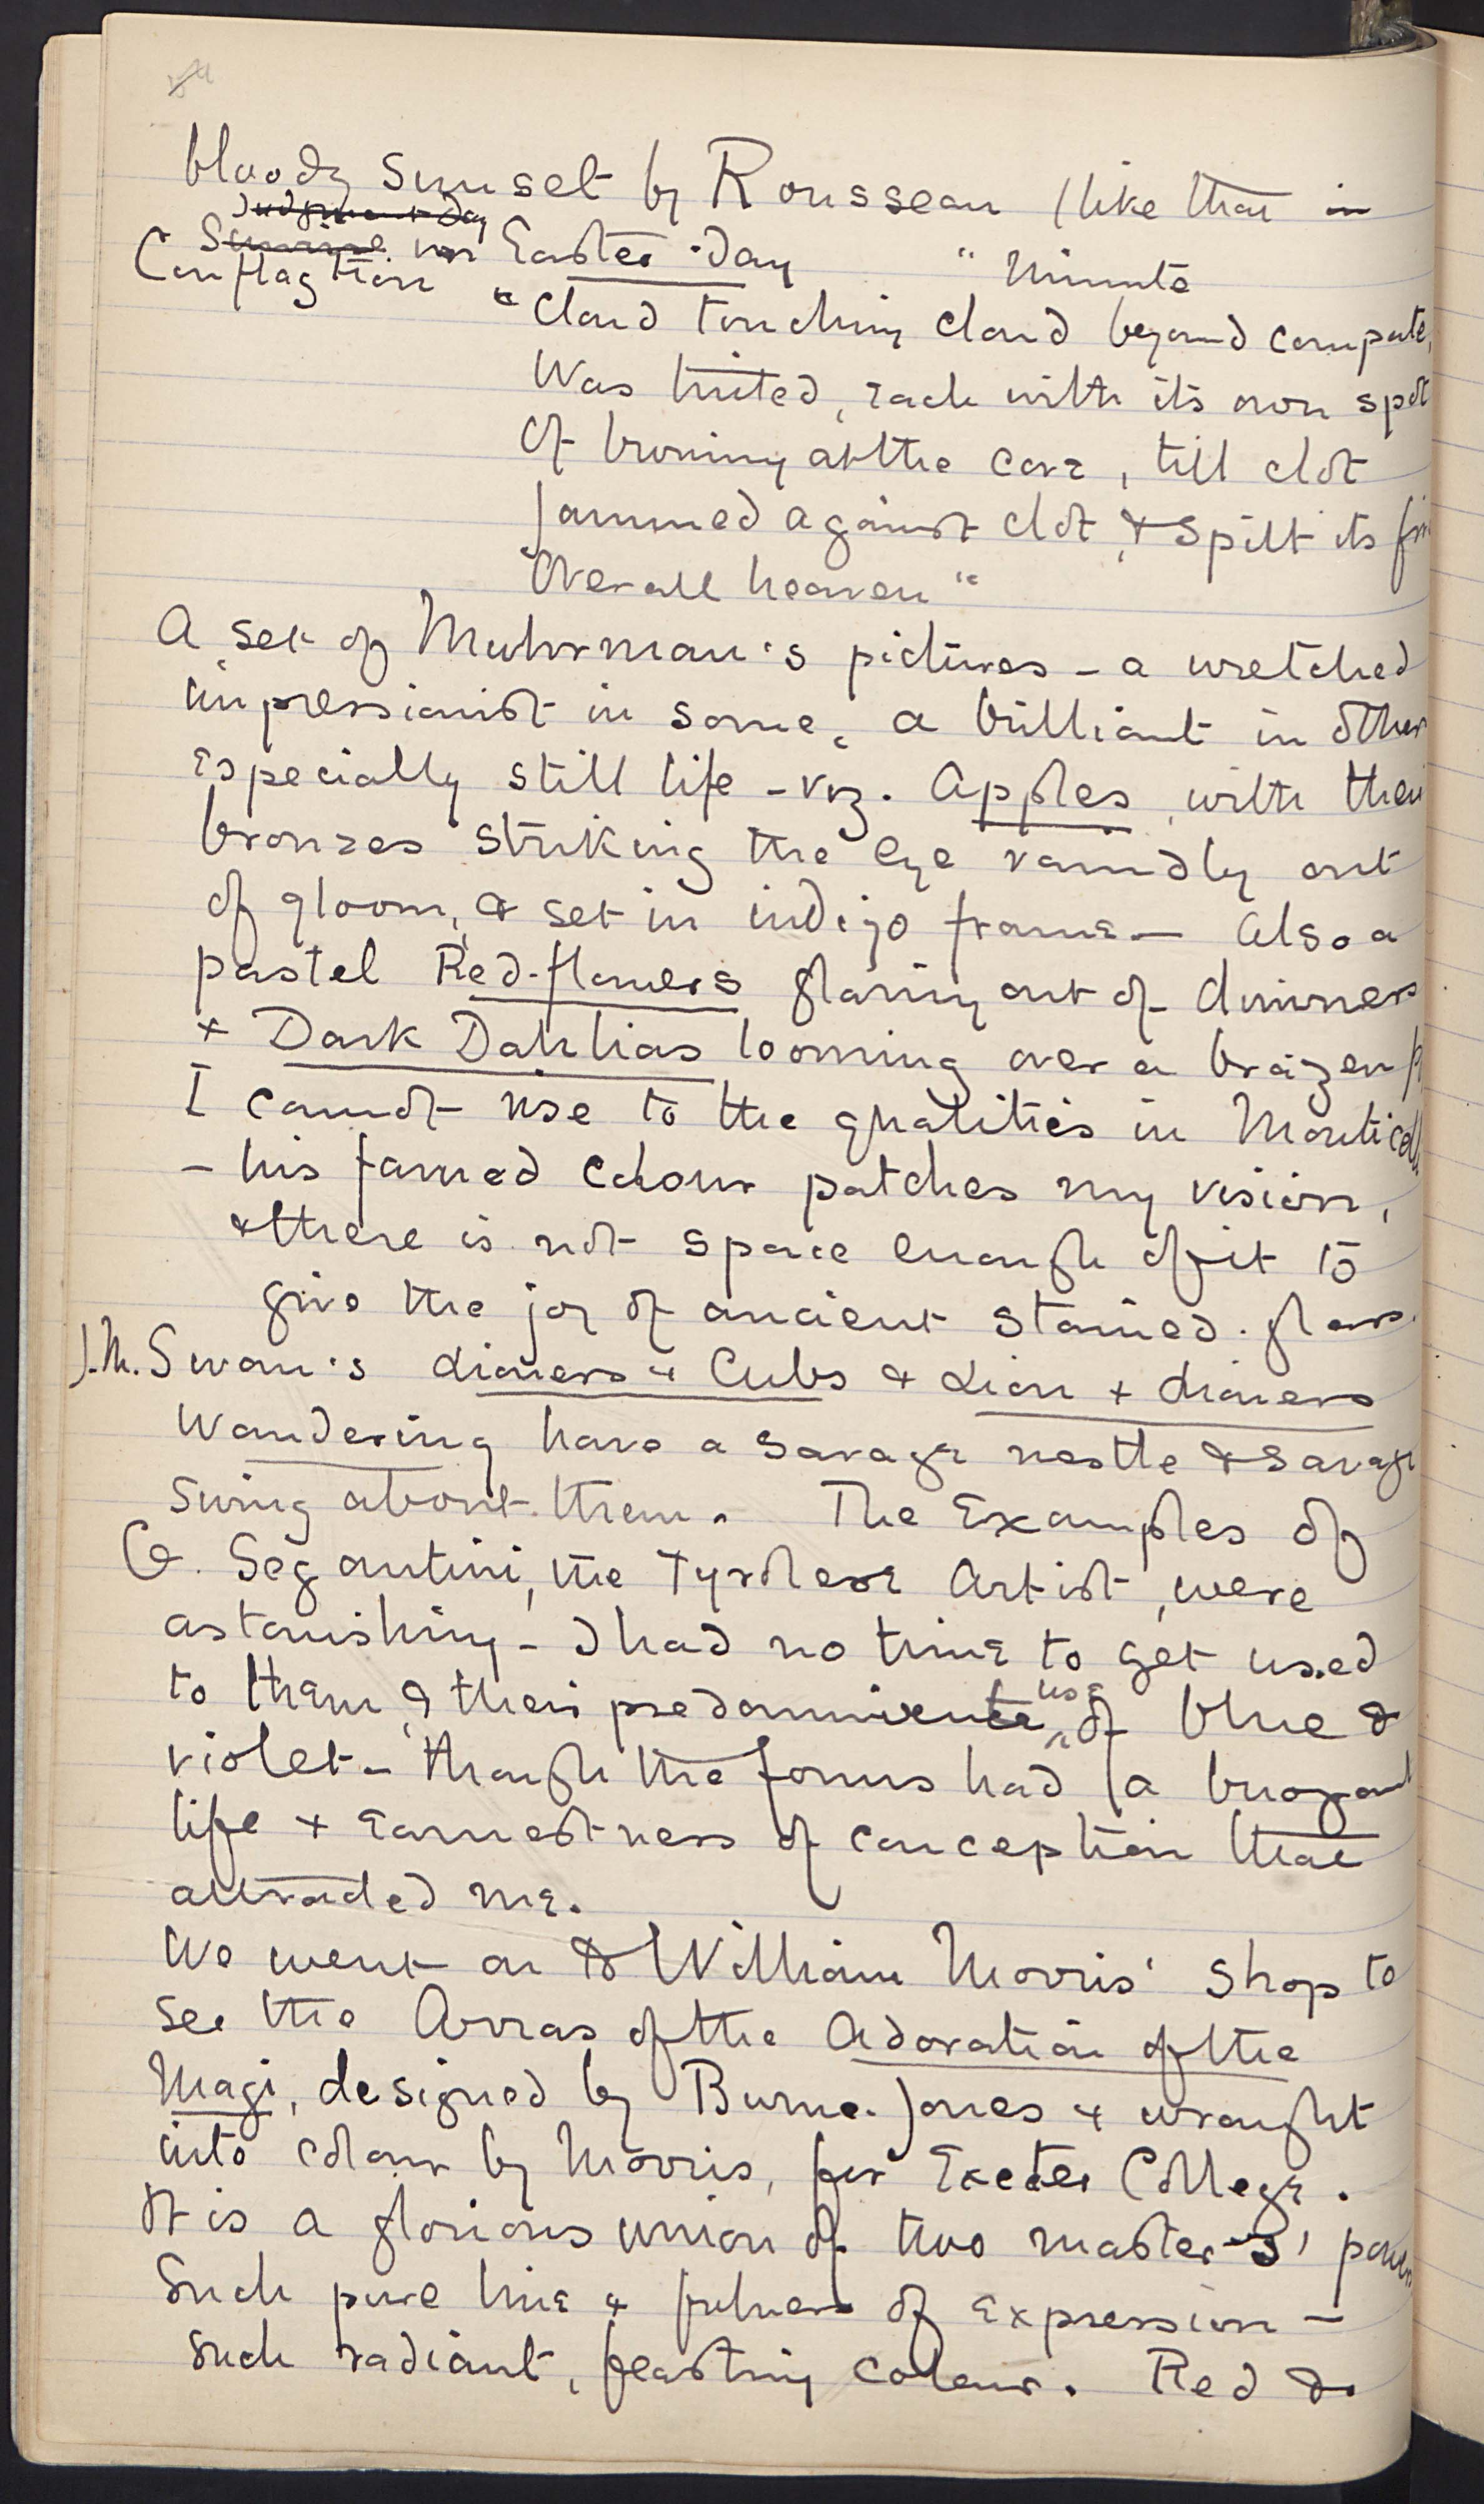 bloody sunset by Rousseau (like that in
Judgment Day
Sunrise in Easter-Day
Conflagtion
" Minute
"Cloud touching cloud beyond compute,
Was tinted, each with its own spot
Of burning at the core, till clot
Jammed against clot, & spilt its fire
Over all heaven"
A set of Muhrman's pictures - a wretched
impressionist in some, a brilliant in other
especially still life - viz. Apples, with their
bronzes striking the eye roundly out
of gloom, & set in indigo frame - Also a
pastel Red-flowers flaring out of dimness
+ Dark Dahlias looming over a brazen
I cannot rise to the qualities in Monticelli
- his famed colour patches my vision,
& there is not space enough of it to
give the joy of ancient stained-glass.
J.M. Swan's Lioness + Cubs & Lion + Lioness
Wandering have a savage nestle & savage
swing about them. The Examples of
G. Segantini, the Tyrolese Artist, were
astonishing - I had no time to get used
to them & their predominente use of blue &
violet - though the forms had a buoyant
life + earnestness of conception that
attracted me.
We went on to William Morris' shop to
see the Arras of the Adoration of the
Magi, designed by Burne-Jones & wrought
into colour by Morris, for Exeter College.
It is a glorious union of two masters' power
Such pure line & fulness of expression -
such radiant, feasting colour. Red &